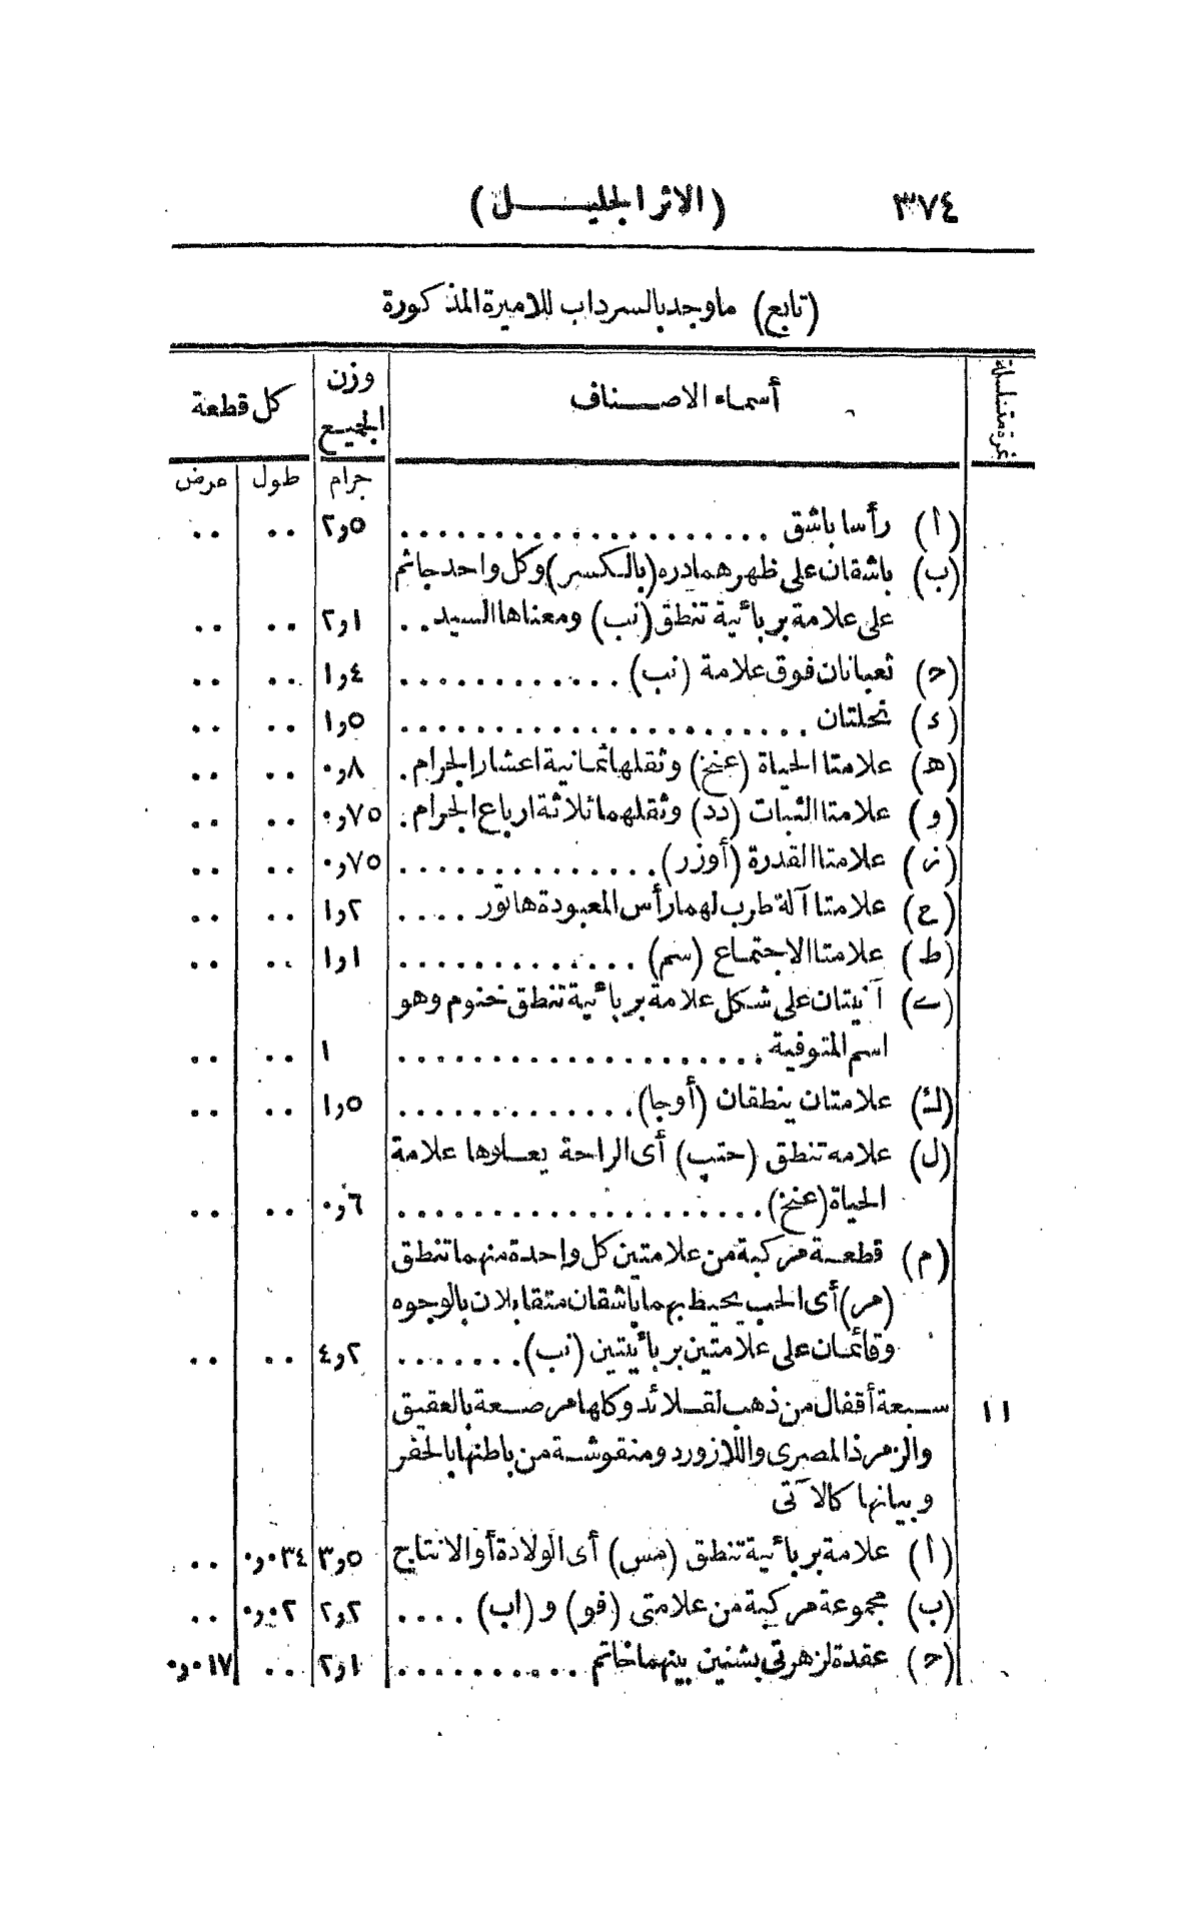 ٣٧٤ (الاثر الجليـــــل)
(تابع) ما وجد بالسرداب للاميرة المذكورة
نمرة متسلسلة أسماء الاصــناف وزن الجميع كل قطعة
جرام طول عرض
(ا) رأسا باشق .................... ٢٫٥ .. ..
(ب) باشقان على ظهرهما دره (بالكسر) وكل واحد جاثم
على علامة بربائية تنطق (نب) ومعناها السيد .. ٢٫١ .. ..
(ح) ثعبانان فوق علامة (نب) ............ ١٫٤ .. ..
(د) نحلتان ...................... ١٫٥ .. ..
(هـ) علامتا الحياة (عنخ) وثقلها ثمانية اعشار الجرام . ٠٫٨ .. ..
(و) علامتا الثبات (دد) وثقلهما ثلاثة ارباع الجرام . ٠٫٧٥ .. ..
(ز) علامتا القدرة (أوزر) .............. ٠٫٧٥ .. ..
(ح) علامتا آلة طرب لهما رأس المعبودة هاتور .... ١٫٢ .. ..
(ط) علامتا الاجتماع (سم) ............. ١٫١ .. ..
(ے) آنيتان على شكل علامة بربائية تنطق خنوم وهو
اسم المتوفية .................... ١ .. ..
(ك) علامتان ينطقان (أوجا) ............. ١٫٥ .. ..
(ل) علامه تنطق (حتب) أى الراحة يعــلوها علامة
الحياة (عنخ) .................... ٠٫٦ .. ..
(م) قطعــة مركبة من علامتين كل واحدة منهما تنطق
(مر) أى الحب يحيط بهما باشقان متقابلان بالوجوه
وقائمان على علامتين بربائيتين (نب) ....... ٤٫٢ .. ..
١١ ســبعة أقفال من ذهب لقــلائد وكلها مرصــعة بالعقيق
والزمرذ المصرى واللازورد ومنقوشــة من باطنها بالحفر
وبيانها كالآتى
(ا) علامة بربائية تنطق (مس) أى الولادة أو الانتاج ٣٫٥ ٠٫٠٣٤ ..
(ب) مجموعة مركبة من علامتى (فو) و (اب) .... ٢٫٢ ٠٫٠٢ ..
(ح) عقدة لزهرتى بشنين بينهما خاتم .......... ٢٫١ .. ٠٫٠١٧